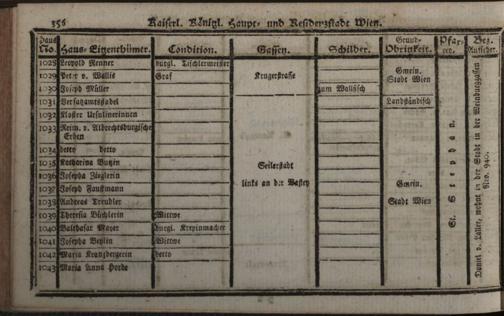 356 Kaiserl. Königl. Haupt- und Residenzstadt Wien.
No. Haus-Eigenthümer. Condition. Gassen. Schilder. Grund-Obrigkeit. Pfar- Bez.
1028 Leopold Renner burgl. Tischlermeister
1029 Peter v. Wallis Graf Krugerstrasse Gmein. Stadt Wien
1030 Joseph Müller zum Wallfisch
1031 Versatzamtsstadel Landständisch
1032 Kloster Ursulinerinnen
1033 Reim. v. Albrechtsburgische Erben
1034 detto detto
1035 Katharina
1036 Josepha Zieglerin Seilerstadt
1037 Joseph Faustmann links an der Bastey Gmein.
1038 Andreas Stadt Wien
1039 Theresia Büchlerin Wittwe
1040 Balthasar Mayer burgl. Krepinmacher
1041 Josepha Wittwe
1042 Maria detto
1043 Maria Anna
St. Stephan.
Daniel v. wohnt in der Stadt in der Weinburggassen
Nro. 940.